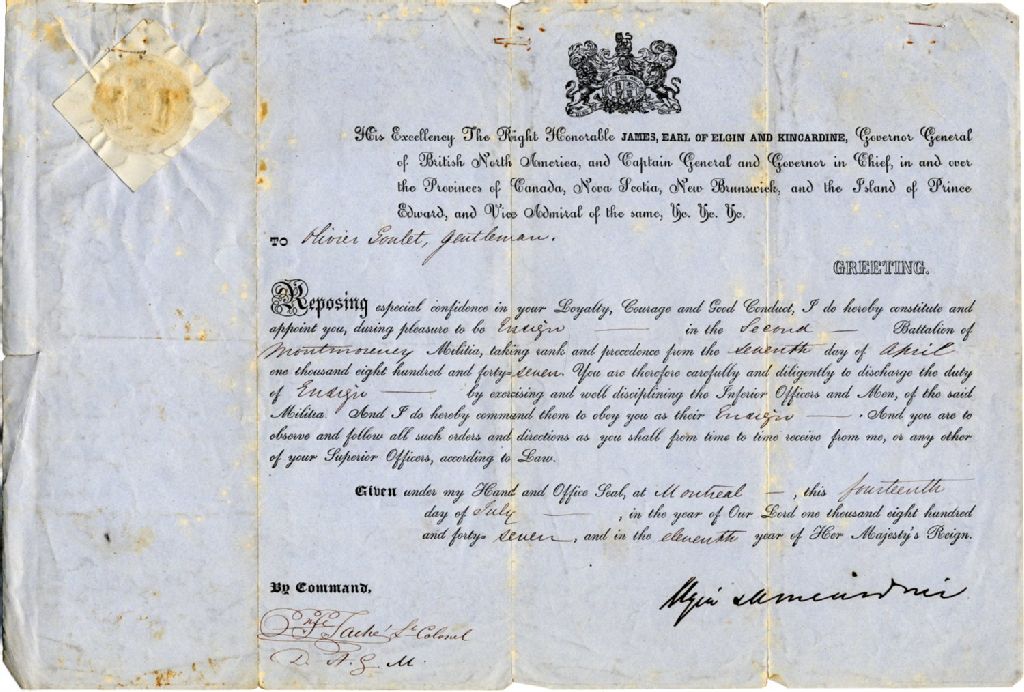 His Excellency The Right Honorable JAMES, EARL OF ELGIN AND KINCARDINE, Governor General
of British North America, and Captain General and Governor in Chief, in and over
the Provinces of Canada, Nova Scotia, New Brunswick, and the Island of Prince
Edward, and Vice Admiral of the same, &c. &c. &c.
TO Olivier Goulet, Gentleman.
GREETING.
Reposing especial confidence in your Loyalty, Courage and Good Conduct, I do hereby constitute and
appoint you, during pleasure to be Ensign — in the Second — Battalion of
Montmorency Militia, taking rank and precedence from the seventh day of April
one thousand eight hundred and forty=seven. You are therefore carefully and diligently to discharge the duty
of Ensign — by exercising and well disciplining the Inferior Officers and Men, of the said
Militia. And I do hereby command them to obey you as their Ensign — . And you are to
observe and follow all such orders and directions as you shall from time to time receive from me, or any other
of your Superior Officers, according to Law.
Given under my Hand and Office Seal, at Montreal — , this fourteenth
day of July — , in the year of Our Lord one thousand eight hundred
and forty=seven, and in the eleventh year of Her Majesty's Reign.
By Command,
Elgin & Kincardine
Taché Lt Colonel
D. A. G. M.